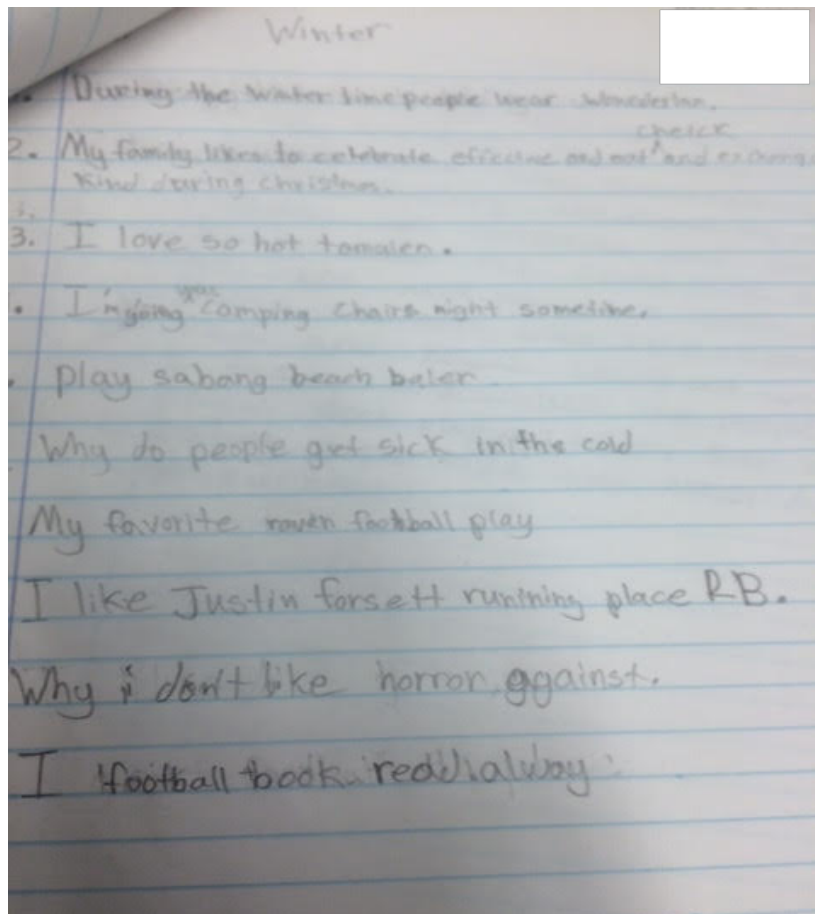 Winter
During the winter time people wear
cheick
2. My family likes to celebrate effective and eat ^ and
Kind during christmas.
3. I love so hot tomalen.
I'm going camping chairs night sometime.
play sabang beach baler
Why do people get sick in the cold
My favorite raven football play
I like Justin forsett running place RB.
Why i don't like horror ggainst.
I football book